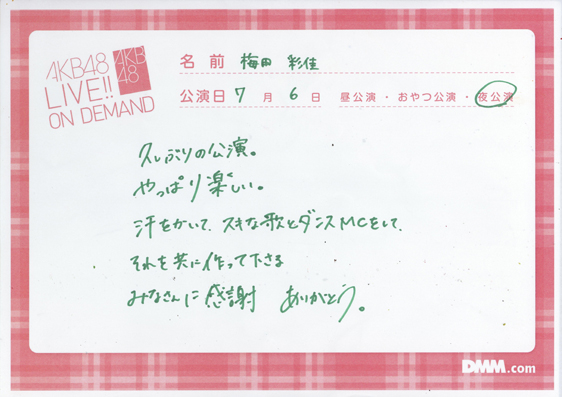 AKB48
LIVE!!
ON DEMAND
AKB
48
名前 梅田 彩佳
公演日 7 月 6 日 昼公演・おやつ公演・夜公演
久しぶりの公演。
やっぱり楽しい。
汗をかいて、スキな歌とダンスMCをして、
それを共に作って下さる
みなさんに感謝 ありがとう。
DMM.com